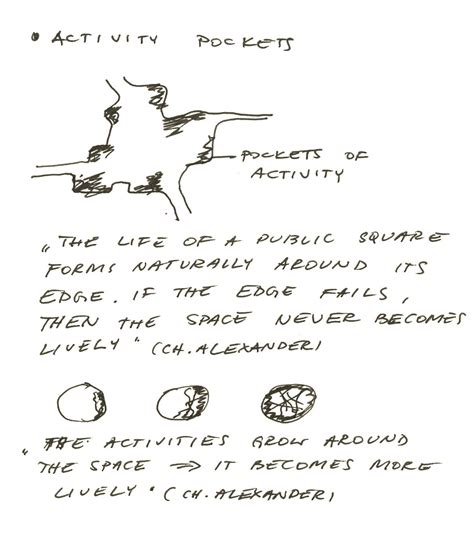 • ACTIVITY POCKETS
POCKETS OF
ACTIVITY
„THE LIFE OF A PUBLIC SQUARE
FORMS NATURALLY AROUND ITS
EDGE. IF THE EDGE FAILS,
THEN THE SPACE NEVER BECOMES
LIVELY" (CH. ALEXANDER)
„THE ACTIVITIES GROW AROUND
THE SPACE ⇒ IT BECOMES MORE
LIVELY" (CH. ALEXANDER)